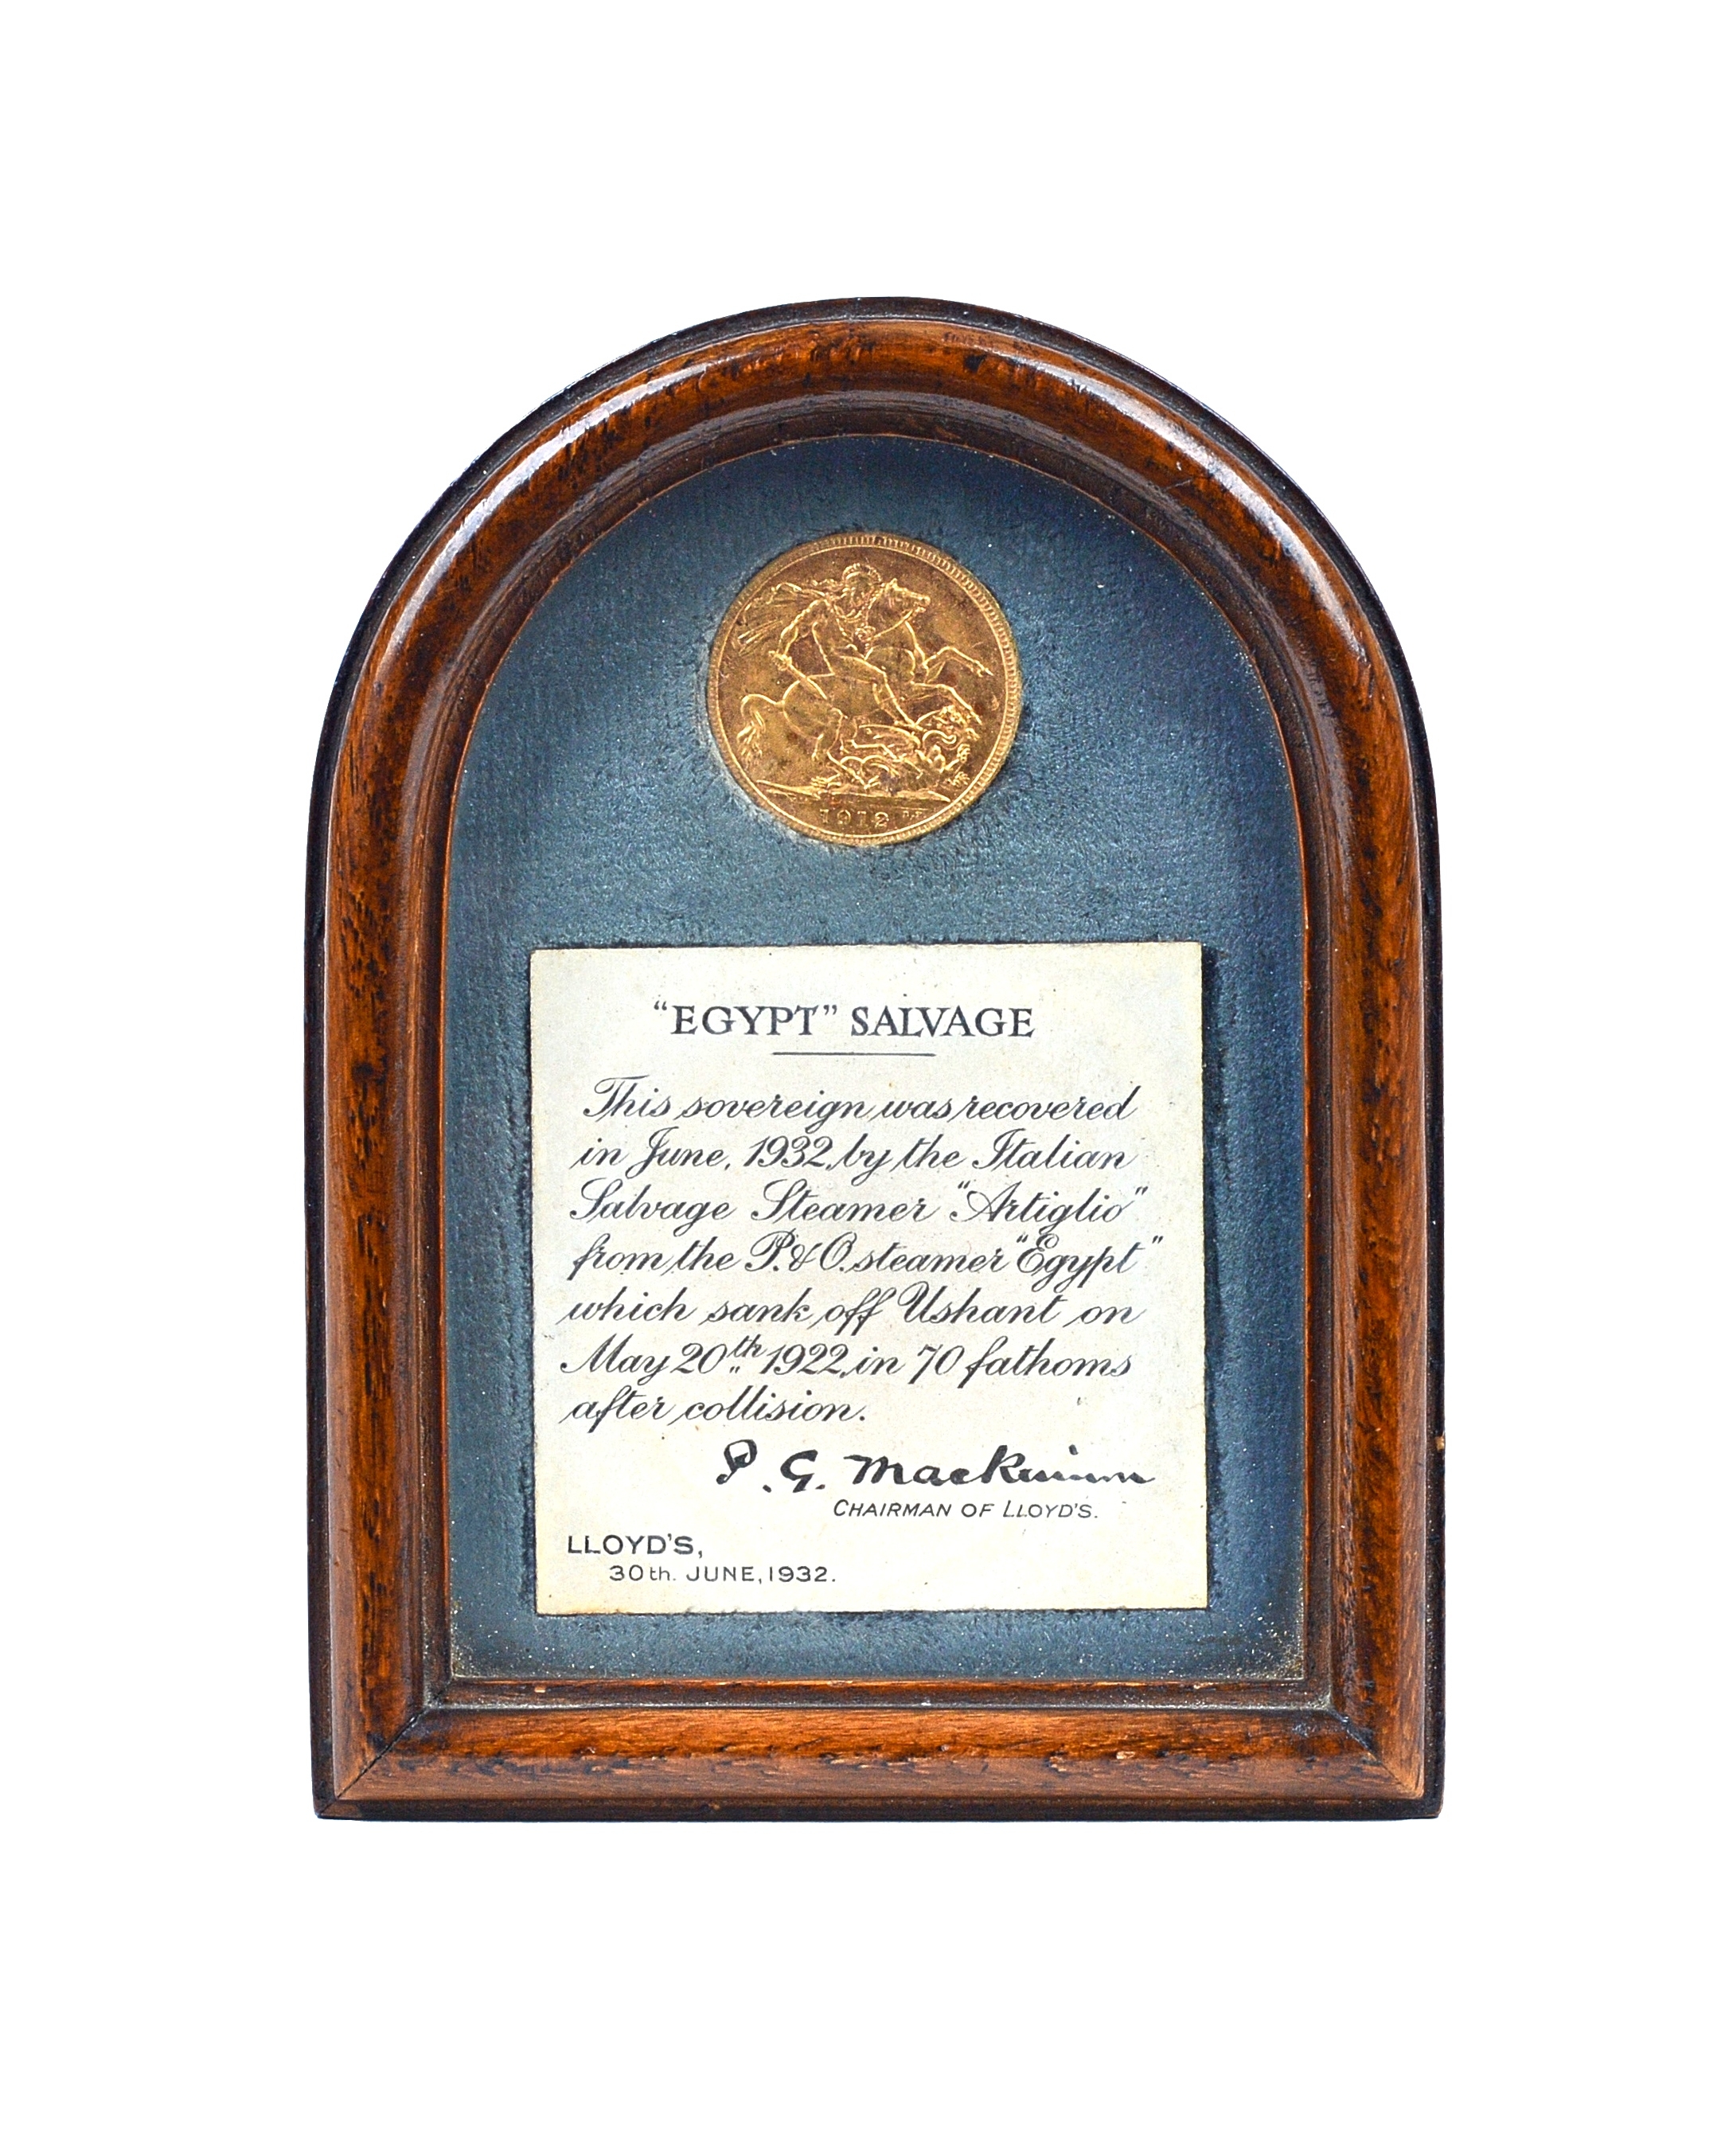 1912
"EGYPT" SALVAGE
This sovereign was recovered
in June, 1932, by the Italian
Salvage Steamer "Artiglio"
from the P. & O. steamer "Egypt"
which sank off Ushant on
May 20th 1922, in 70 fathoms
after collision.
P. G. Mackinnon
CHAIRMAN OF LLOYD'S.
LLOYD'S,
30th. JUNE, 1932.